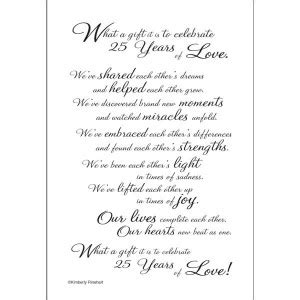 What a gift it is to celebrate
25 Years
of Love.
We've shared each other's dreams
and helped each other grow.
We've discovered brand new moments
and watched miracles unfold.
We've embraced each other's differences
and found each other's strengths.
We've been each other's light
in times of sadness.
We've lifted each other up
in times of joy.
Our lives complete each other.
Our hearts now beat as one.
What a gift it is to celebrate
25 Years
of Love!
©Kimberly Rinehart